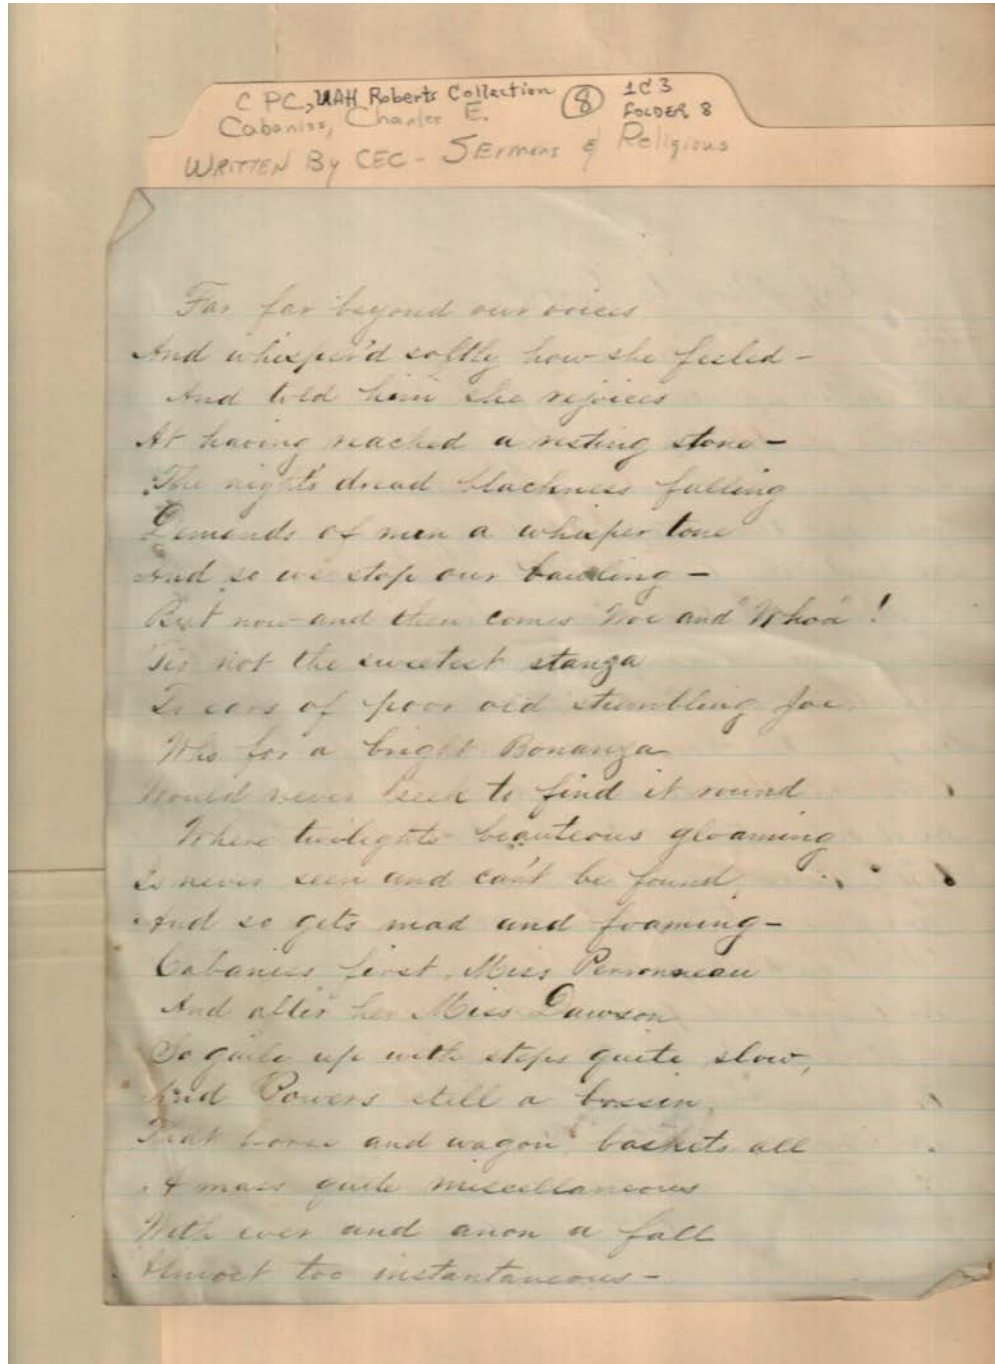 CPC, UAH Roberts Collection ⑧ 1C3
FOLDER 8
Cabaniss, Charles E.
WRITTEN By CEC - SErmons & Religious
Far far beyond our voices
And whisper'd softly how she feeled -
And told him she rejoices
At having reached a resting stone -
The night's dread blackness falling
Demands of men a whisper tone
And so we stop our bawling -
But now and then comes "Woe and "Whoa"!
'Tis not the sweetest stanza
To ears of poor old stumbling Joe
Who for a bright Bonanza
Would never seek to find it round
Where twilights beauteous gloaming
Is never seen and can't be found,
And so gets mad and foaming -
Cabaniss first, Miss Personneau
And after her Miss Dawson
So up with steps quite slow,
And Powers still a bossin,
That horse and wagon baskets all
A mass quite miscellaneous
With ever and anon a fall
Almost too instantaneous -